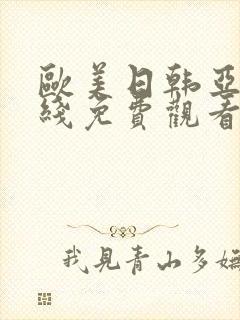 歐美日韩亞
綫免費觀看
我見青山多嫵